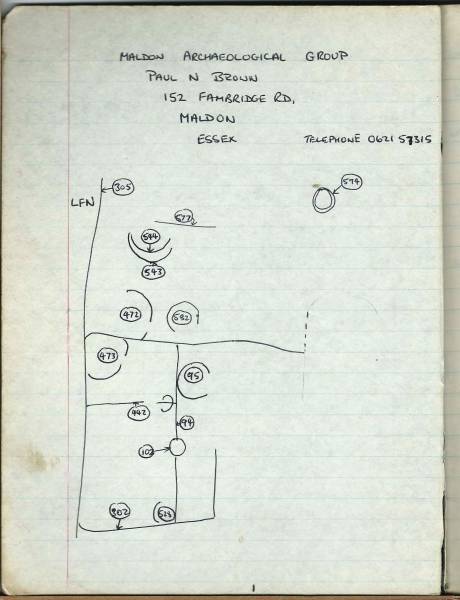 MALDON ARCHAEOLOGICAL GROUP
PAUL N BROWN
152 FAMBRIDGE RD,
MALDON
ESSEX TELEPHONE 0621 57315
305
574
LFN
577
544
543
472
582
473
95
442
94
102
302
528
1